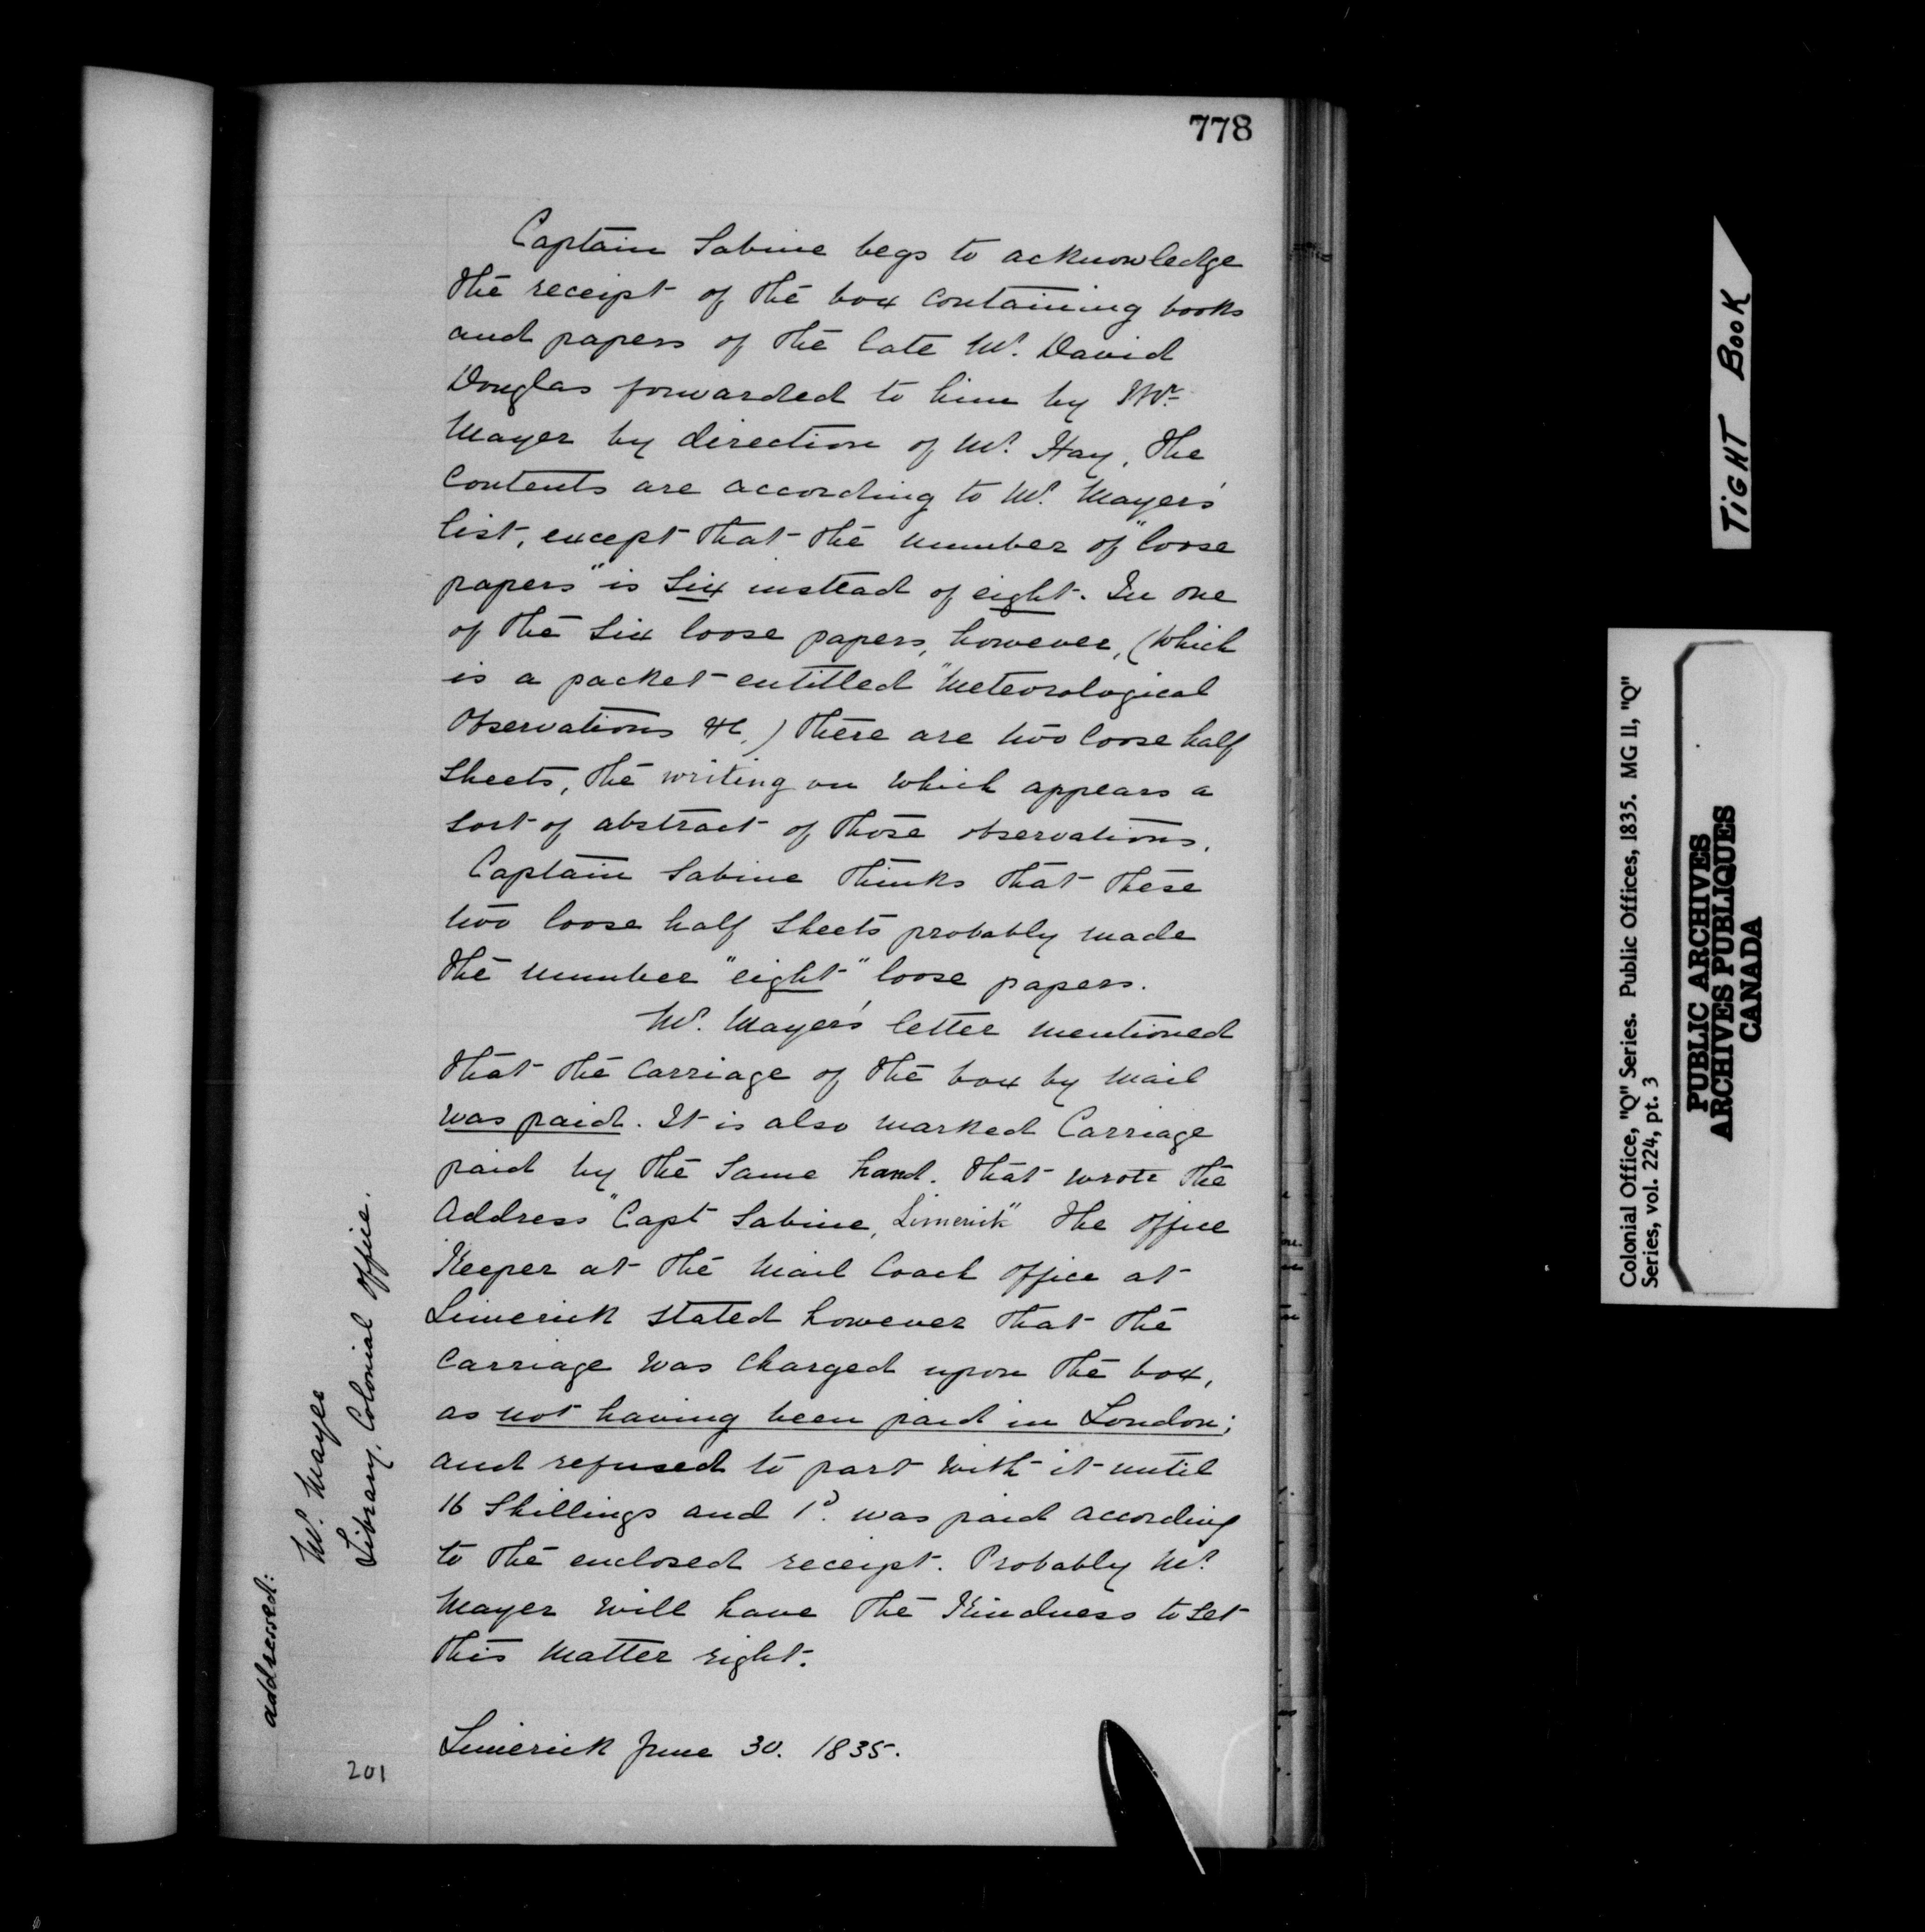 778
Captain Sabine begs to acknowledge
the receipt of the box containing books
and papers of the late Mr. David
Douglas forwarded to him by Mr.
Mayer by direction of Mr. Hay, the
Contents are according to Mr. Mayer's
list, except that the number of "loose
papers" is six instead of eight. In one
of the six loose papers, however, (which
is a packet entitled "Meteorological
Observations &c.) there are two loose half
sheets, the writing on which appears a
sort of abstract of those observations.
Captain Sabine thinks that these
two loose half sheets probably made
the number "eight" loose papers.
Mr. Mayer's letter mentioned
that the Carriage of the box by mail
was paid. It is also marked Carriage
paid by the same hand. that wrote the
Address "Capt Sabine, Limerick" The office
Keeper at the Mail Coach office at
Limerick stated however that the
Carriage was charged upon the box,
as not having been paid in London;
and refused to part with it until
16 Shillings and 1d. was paid according
to the enclosed receipt. Probably Mr.
Mayer will have the Kindness to set
this matter right.
Limerick June 30. 1835.
addressed:
Mr. Mayer
Library, Colonial Office.
201
TIGHT BOOK
Colonial Office, "Q" Series. Public Offices, 1835. MG 11, "Q"
Series, vol. 224, pt. 3
PUBLIC ARCHIVES
ARCHIVES PUBLIQUES
CANADA